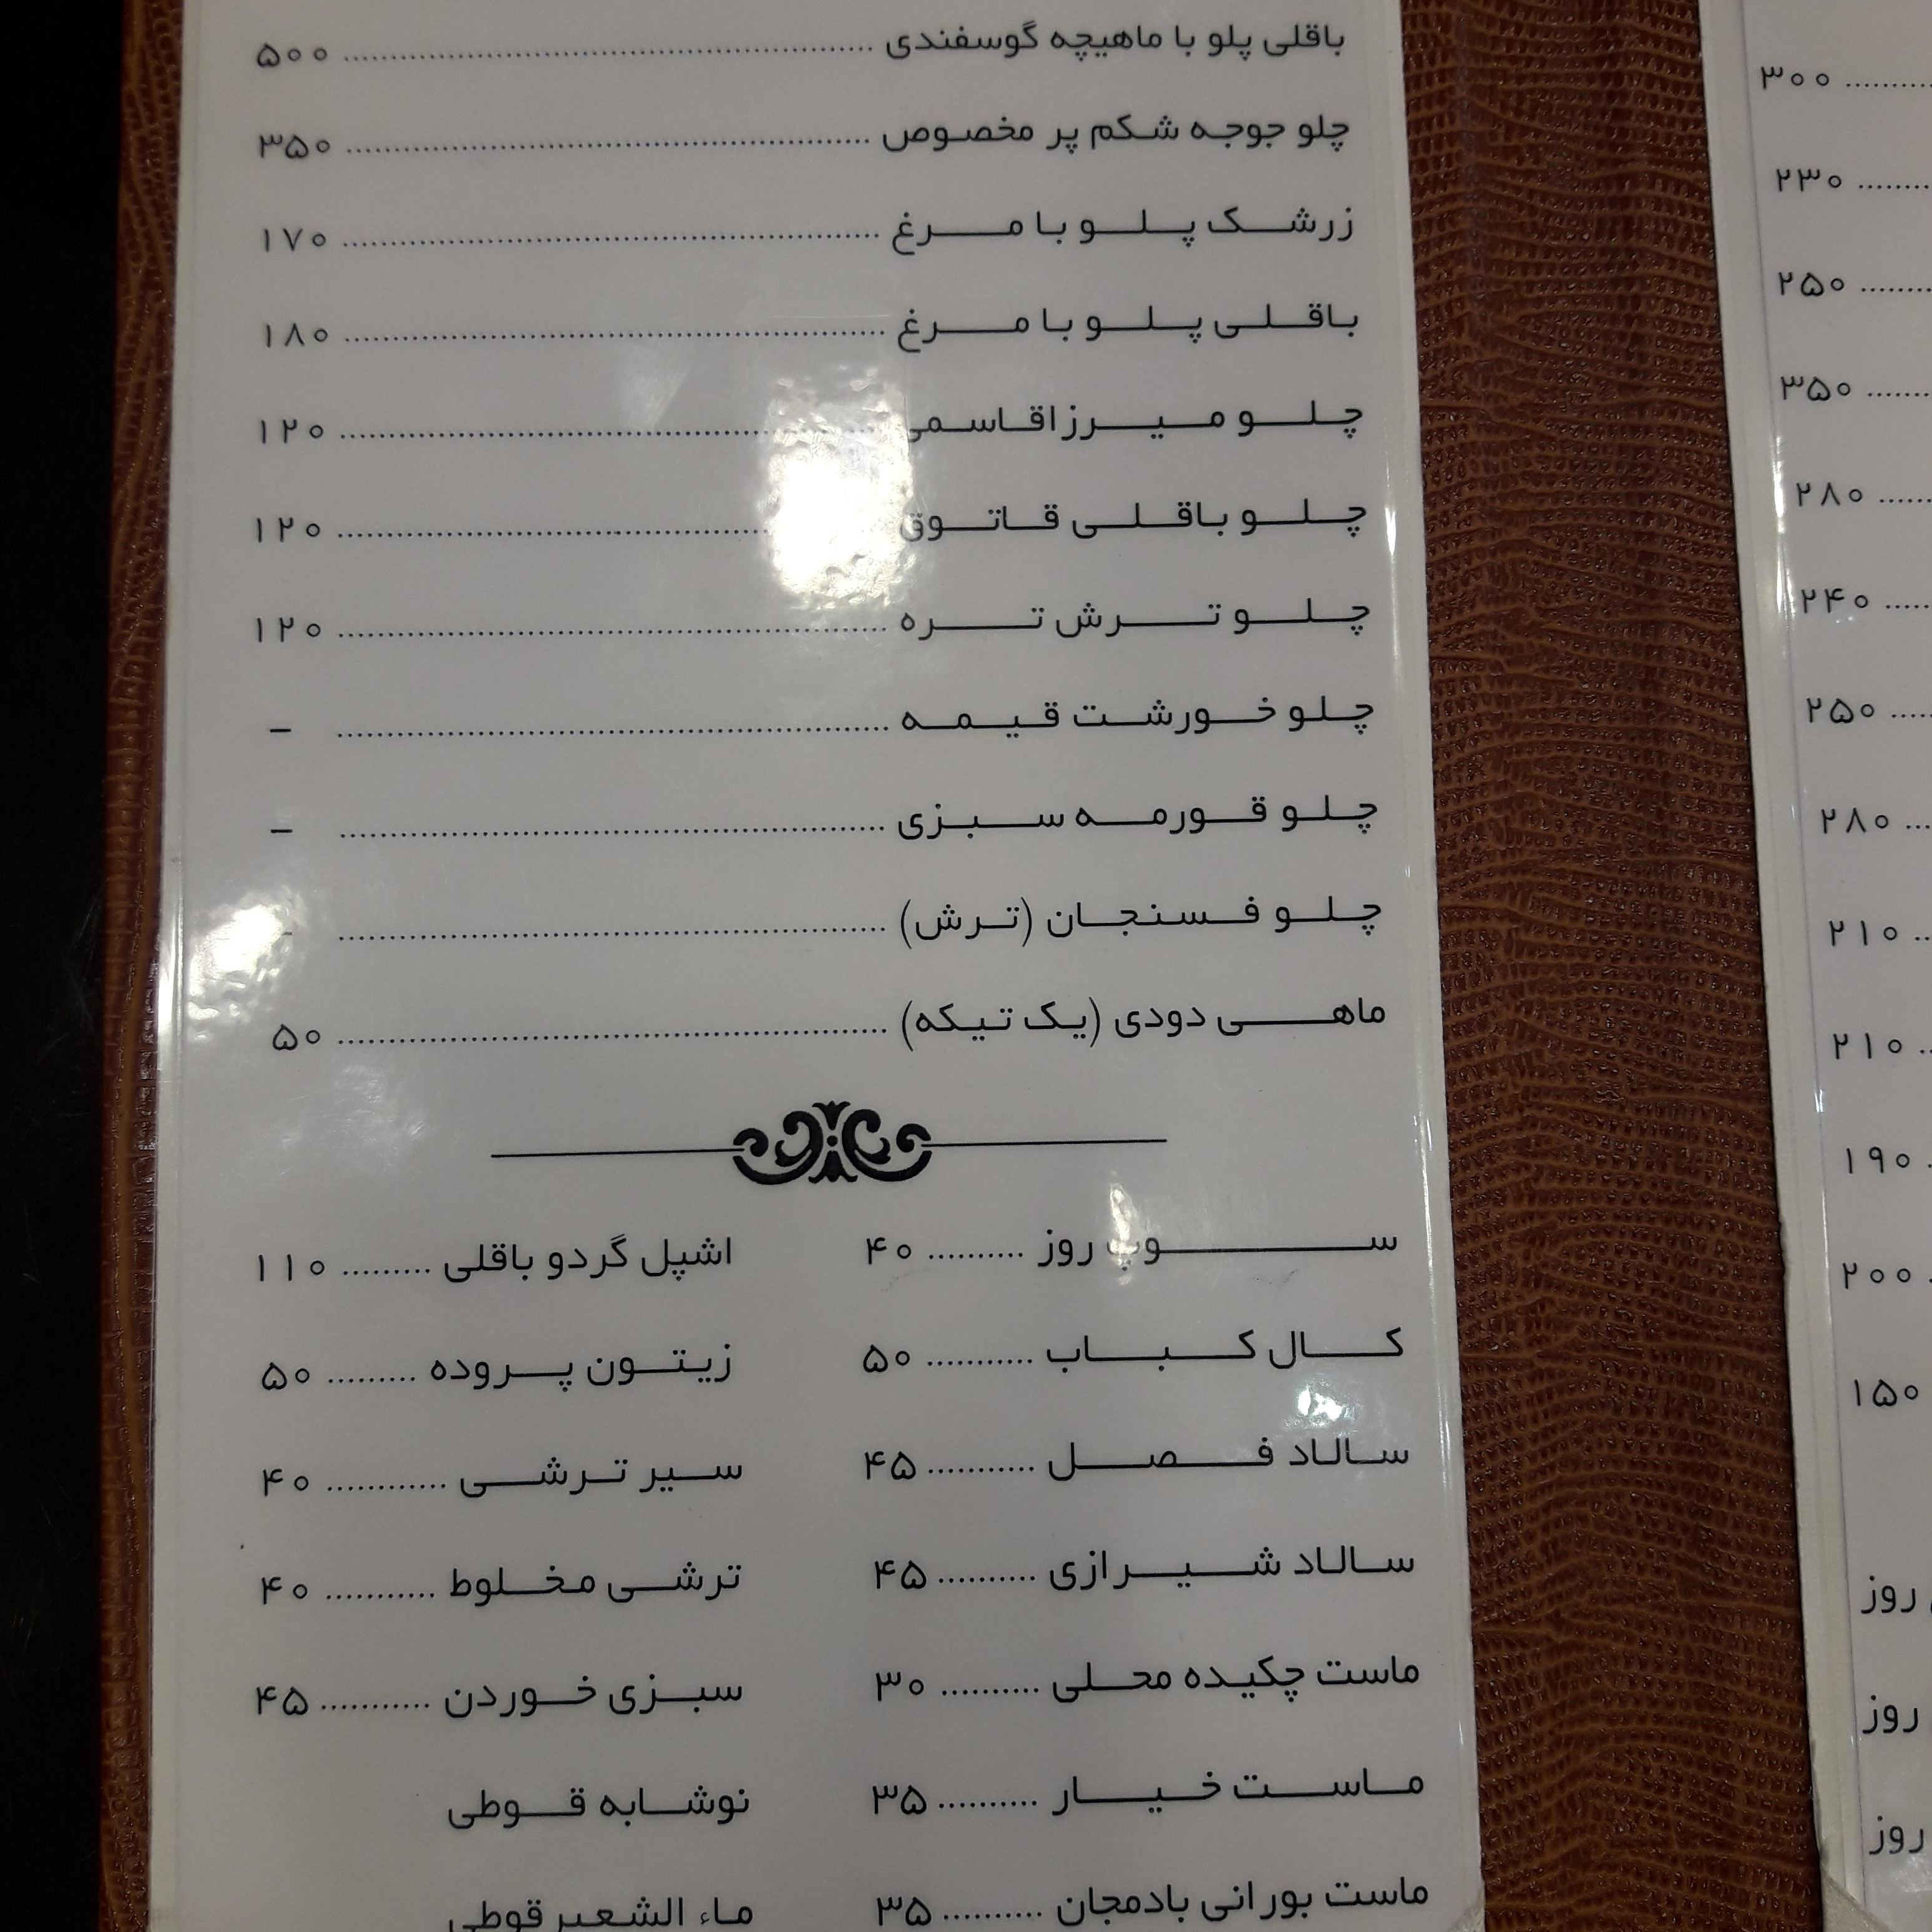 باقلی پلو با ماهیچه گوسفندی ........ ۵۰۰
چلو جوجه شکم پر مخصوص ........ ۳۵۰
زرشک پلو با مرغ ........ ۱۷۰
باقلی پلو با مرغ ........ ۱۸۰
چلو میرزاقاسمی ........ ۱۲۰
چلو باقلی قاتوق ........ ۱۲۰
چلو ترش تره ........ ۱۲۰
چلو خورشت قیمه ........ –
چلو قورمه سبزی ........ –
چلو فسنجان (ترش) ........ –
ماهی دودی (یک تیکه) ........ ۵۰
سوپ روز ........ ۴۰
کال کباب ........ ۵۰
سالاد فصل ........ ۴۵
سالاد شیرازی ........ ۴۵
ماست چکیده محلی ........ ۳۰
ماست خیار ........ ۳۵
ماست بورانی بادمجان ........ ۳۵
اشپل گردو باقلی ........ ۱۱۰
زیتون پروده ........ ۵۰
سیر ترشی ........ ۴۰
ترشی مخلوط ........ ۴۰
سبزی خوردن ........ ۴۵
نوشابه قوطی
ماء الشعیر قوطی
۳۰۰
۲۳۰
۲۵۰
۳۵۰
۲۸۰
۲۴۰
۲۵۰
۲۸۰
۲۱۰
۲۱۰
۱۹۰
۲۰۰
۱۵۰
روز
روز
روز